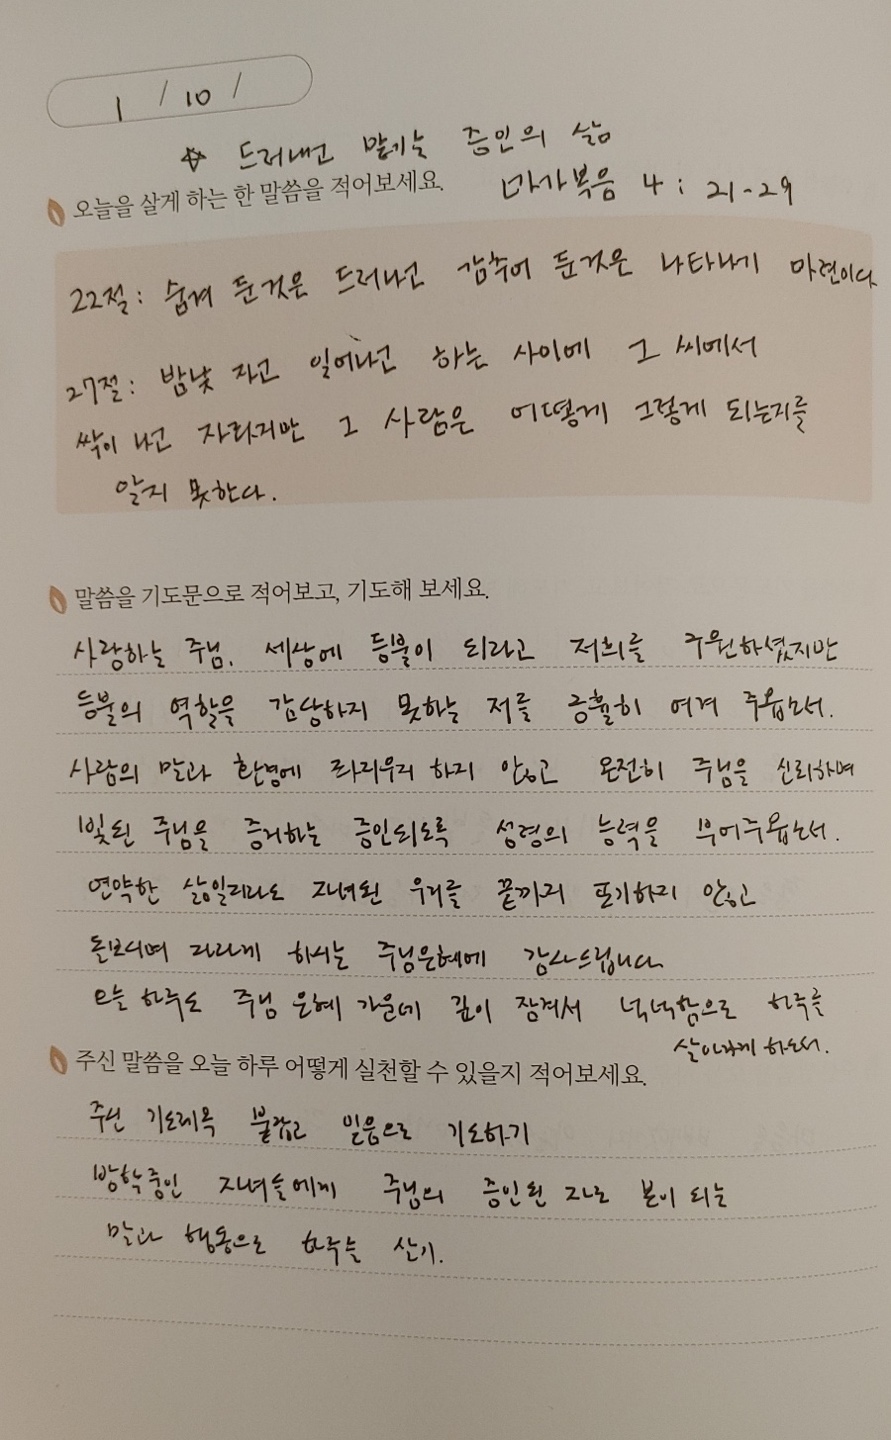 1 / 10 /
☆ 드러내고 맡기는 증인의 삶
오늘을 살게 하는 한 말씀을 적어보세요.
마가복음 4 : 21-29
22절: 숨겨 둔것은 드러나고 감추어 둔것은 나타나기 마련이다
27절: 밤낮 자고 일어나고 하는 사이에 그 씨에서
싹이 나고 자라지만 그 사람은 어떻게 그렇게 되는지를
알지 못한다.
말씀을 기도문으로 적어보고, 기도해 보세요.
사랑하는 주님. 세상에 등불이 되라고 저희를 구원하셨지만
등불의 역할을 감당하지 못하는 저를 긍휼히 여겨 주옵소서.
사람의 말과 환경에 좌지우지 하지 않고 온전히 주님을 신뢰하며
빛된 주님을 증거하는 증인되도록 성령의 능력을 부어주옵소서.
연약한 삶일지라도 자녀된 우리를 끝까지 포기하지 않고
돌보시며 자라게 하시는 주님은혜에 감사드립니다
오늘 하루도 주님 은혜 가운데 깊이 잠겨서 넉넉함으로 하루를
살아가게 하소서.
주신 말씀을 오늘 하루 어떻게 실천할 수 있을지 적어보세요.
주신 기도제목 붙잡고 믿음으로 기도하기
방학중인 자녀들에게 주님의 증인된 자로 본이 되는
말과 행동으로 하루를 살기.